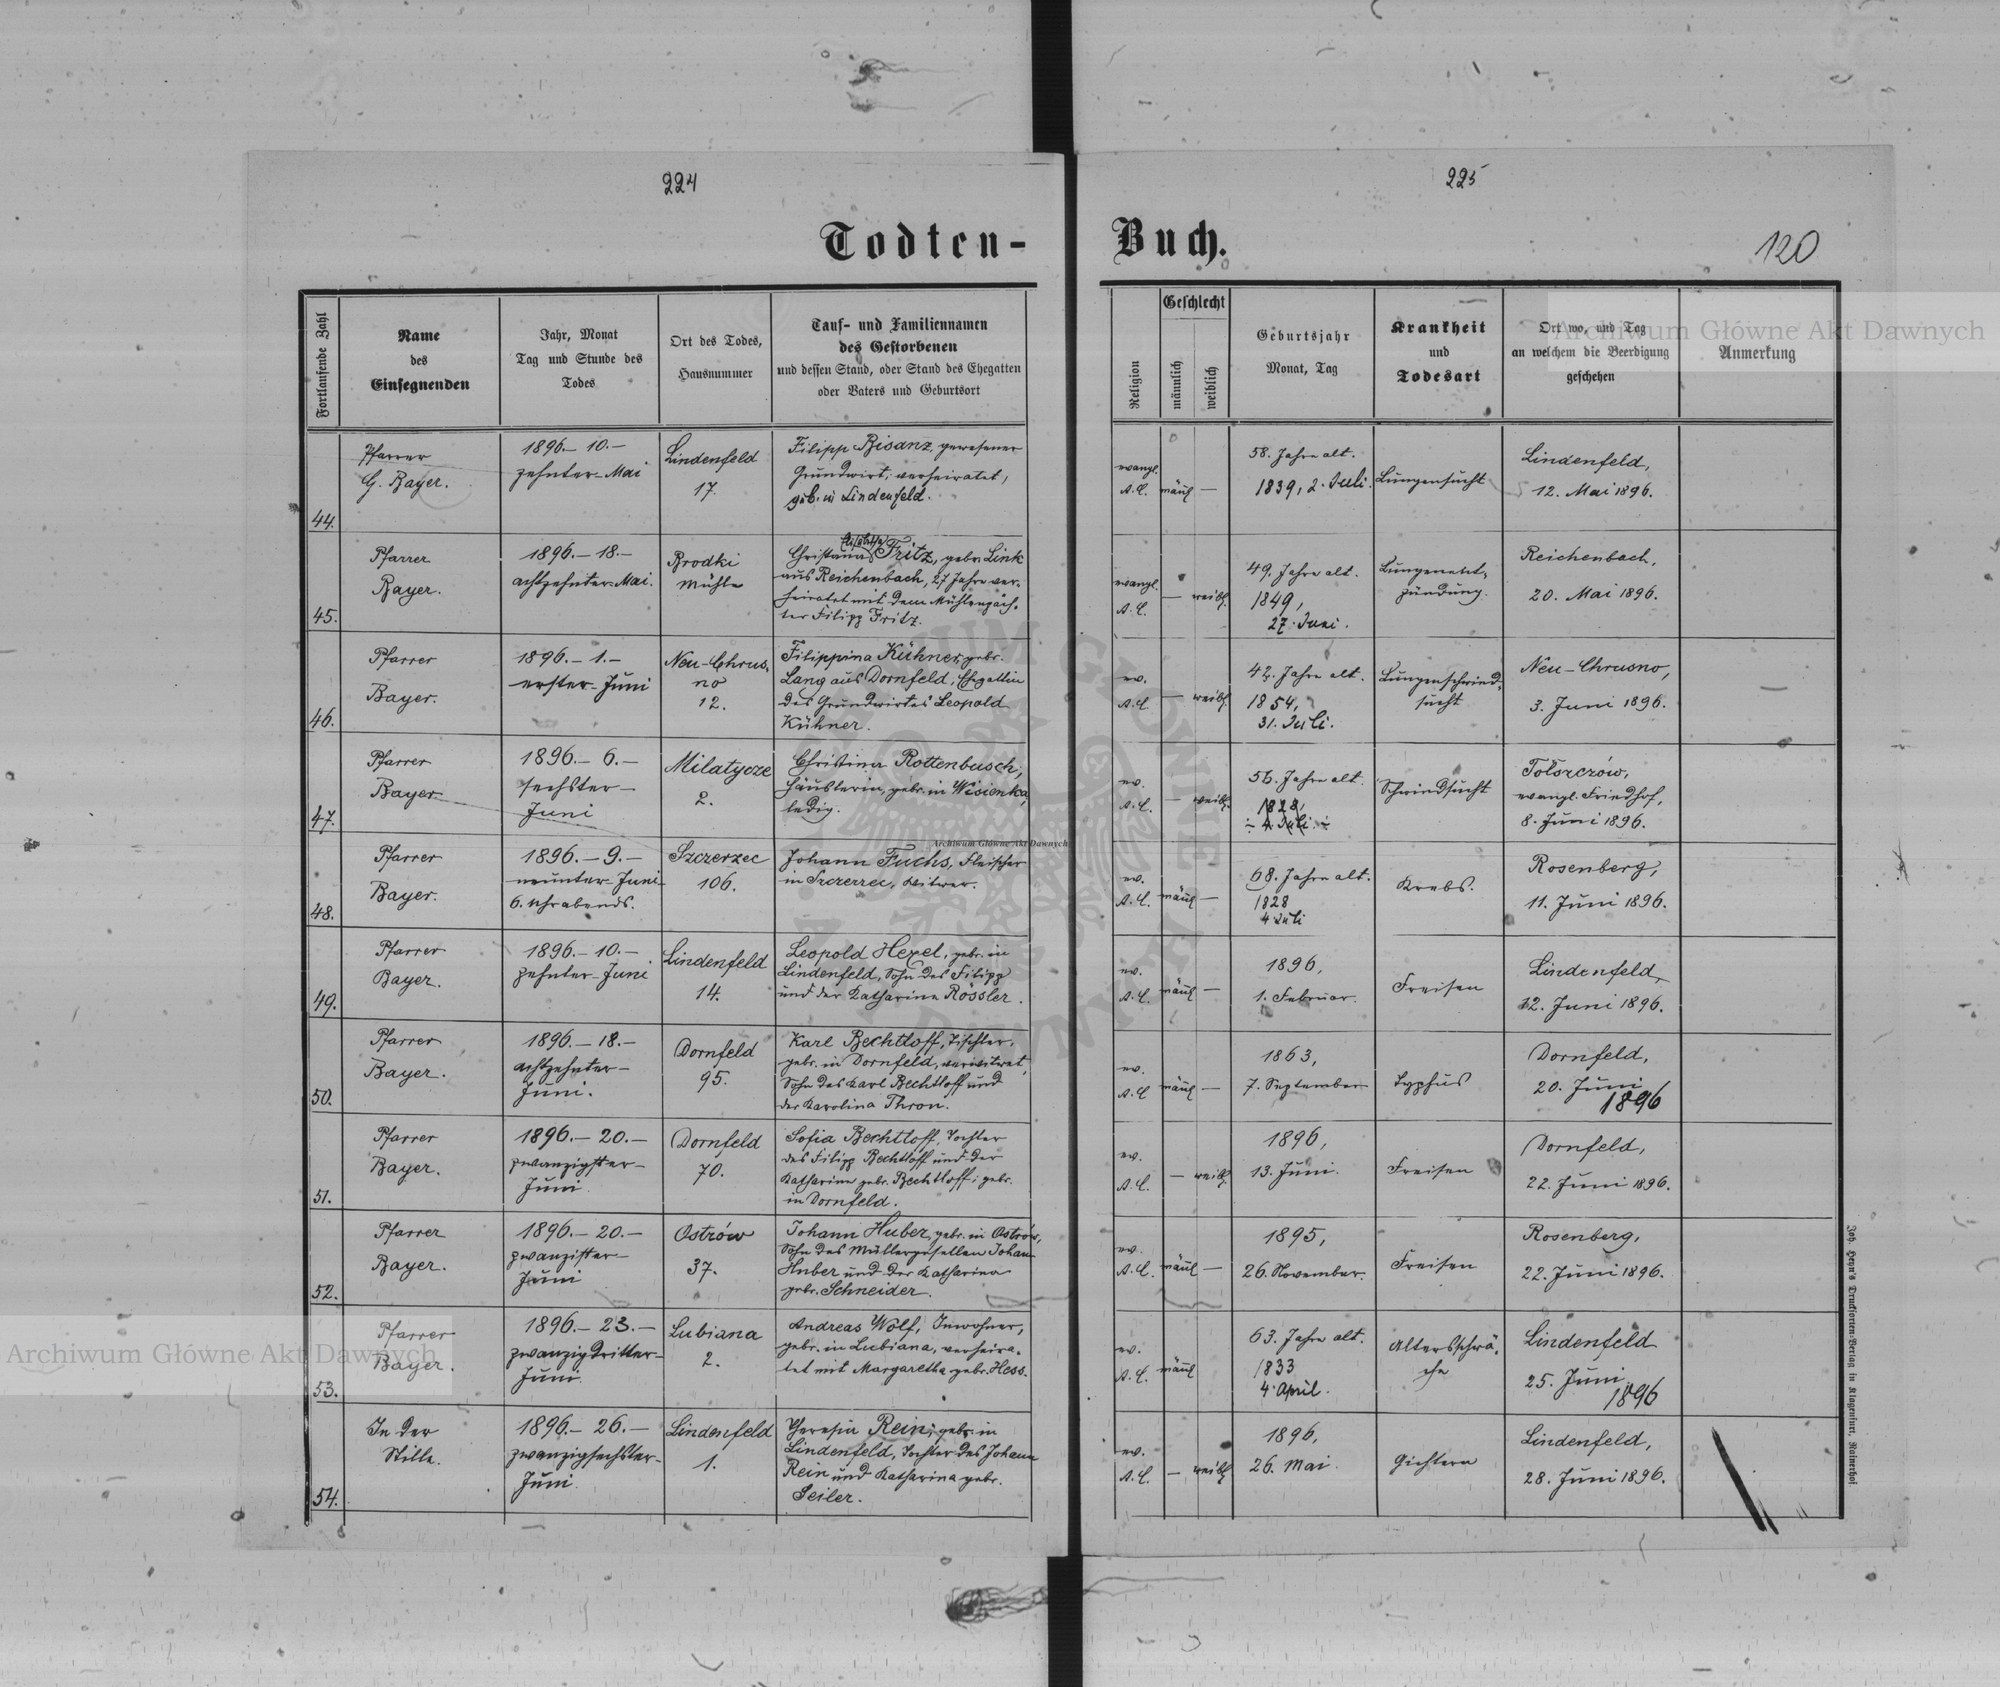 224
225
Todten-
Buch.
120
Fortlaufende Zahl
Name
des
Einsegnenden
Jahr, Monat
Tag und Stunde des
Todes
Ort des Todes,
Hausnummer
Tauf- und Familiennamen
des Gestorbenen
und dessen Stand, oder Stand des Ehegatten
oder Vaters und Geburtsort
Religion
Geschlecht
männlich
weiblich
Geburtsjahr
Monat, Tag
Krankheit
und
Todesart
Ort wo, und Tag
an welchem die Beerdigung
geschehen
Anmerkung
44.
Pfarrer
G. Bayer.
1896.- 10.-
zehnter- Mai
Lindenfeld
17.
Filipp Bisanz, gewesener
Grundwirt, verheiratet,
geb. in Lindenfeld.
evangl.
A.C.
mänl
—
58. Jahre alt.
1839, 2. Juli.
Lungensucht
Lindenfeld,
12. Mai 1896.
45.
Pfarrer
Bayer.
1896.- 18.-
achtzehnter- Mai.
Brodki
Mühle
Elisabetha
Christiana Fritz, gebr. Link
aus Reichenbach, 27 Jahre ver-
heiratet mit dem Mühlenpäch-
ter Filipp Fritz.
evangl.
A.C.
— weibl.
49. Jahre alt.
1849,
27. Juni.
Lungenent-
zündung.
Reichenbach,
20. Mai 1896.
46.
Pfarrer
Bayer.
1896.- 1.-
erster- Juni
Neu-Chrus-
no
12.
Filippina Kühner, gebr.
Lang aus Dornfeld, Ehgattin
des Grundwirtes Leopold
Kühner.
ev.
A.C.
— weibl.
42. Jahre alt.
1854,
31. Juli.
Lungenschwind-
sucht
Neu-Chrusno,
3. Juni 1896.
47.
Pfarrer
Bayer
1896.- 6.-
sechster-
Juni
Milatycze
2.
Christina Rottenbusch,
Häuslerin, gebr. in Wisienka,
ledig.
ev.
A.C.
— weibl.
56. Jahre alt.
1828,
4 Juli.
Schwindsucht
Tołszczów,
evangl. Friedhof,
8. Juni 1896.
48.
Pfarrer
Bayer.
1896.- 9.-
neunter- Juni-
6. Uhr abends.
Szczerzec
106.
Johann Fuchs, Fleischer
in Szczerzec, Witwer.
ev.
A.C.
mänl —
68. Jahre alt.
1828
4 Juli
Krebs.
Rosenberg,
11. Juni 1896.
49.
Pfarrer
Bayer.
1896.- 10.-
zehnter- Juni
Lindenfeld
14.
Leopold Hexel, gebr. in
Lindenfeld, Sohn des Filipp
und der Katharina Rössler.
ev.
A.C.
mänl —
1896,
1. Februar.
Freisen
Lindenfeld,
12. Juni 1896.
50.
Pfarrer
Bayer.
1896.- 18.-
achtzehnter-
Juni.
Dornfeld
95.
Karl Bechtloff, Tischler,
gebr. in Dornfeld, verwitwet,
Sohn des Karl Bechtloff und
der Karolina Thron.
ev.
A.C.
mänl —
1863,
7. September
Typhus
Dornfeld,
20. Juni
1896
51.
Pfarrer
Bayer.
1896.- 20.-
zwanzigster-
Juni
Dornfeld
70.
Sofia Bechtloff, Tochter
des Filipp Bechtloff und der
Katharina gebr. Bechtloff; gebr.
in Dornfeld.
ev.
A.C.
— weibl.
1896,
13. Juni.
Freisen
Dornfeld,
22. Juni 1896.
52.
Pfarrer
Bayer.
1896.- 20.-
zwanzister-
Juni
Ostrów
37.
Johann Huber, gebr. in Ostrów,
Sohn des Müllergesellen Johann
Huber und der Katharina
gebr. Schneider.
ev.
A.C.
mänl —
1895,
26. November.
Freisen
Rosenberg,
22. Juni 1896.
53.
Pfarrer
Bayer.
1896.- 23.-
zwanzigdritter-
Juni
Lubiana
2.
Andreas Wolf, Inwohner,
gebr. in Lubiana, verheira-
tet mit Margaretha gebr. Hess.
ev.
A.C.
mänl
63. Jahre alt.
1833
4. April.
Altersschwä-
che
Lindenfeld
25. Juni
1896
54.
In der
Stille.
1896.- 26.-
zwanzigsechster-
Juni.
Lindenfeld
1.
Theresia Rein, gebr. in
Lindenfeld, Tochter des Johann
Rein und Katharina gebr.
Seiler.
ev.
A.C.
— weibl
1896,
26. Mai.
Gichtern
Lindenfeld,
28. Juni 1896.
Joh. Heyn's Drucksorten-Verlag in Klagenfurt, Rainerhof.
Archiwum Główne Akt Dawnych
Archiwum Główne Akt Dawnych
Archiwum Główne Akt Dawnych